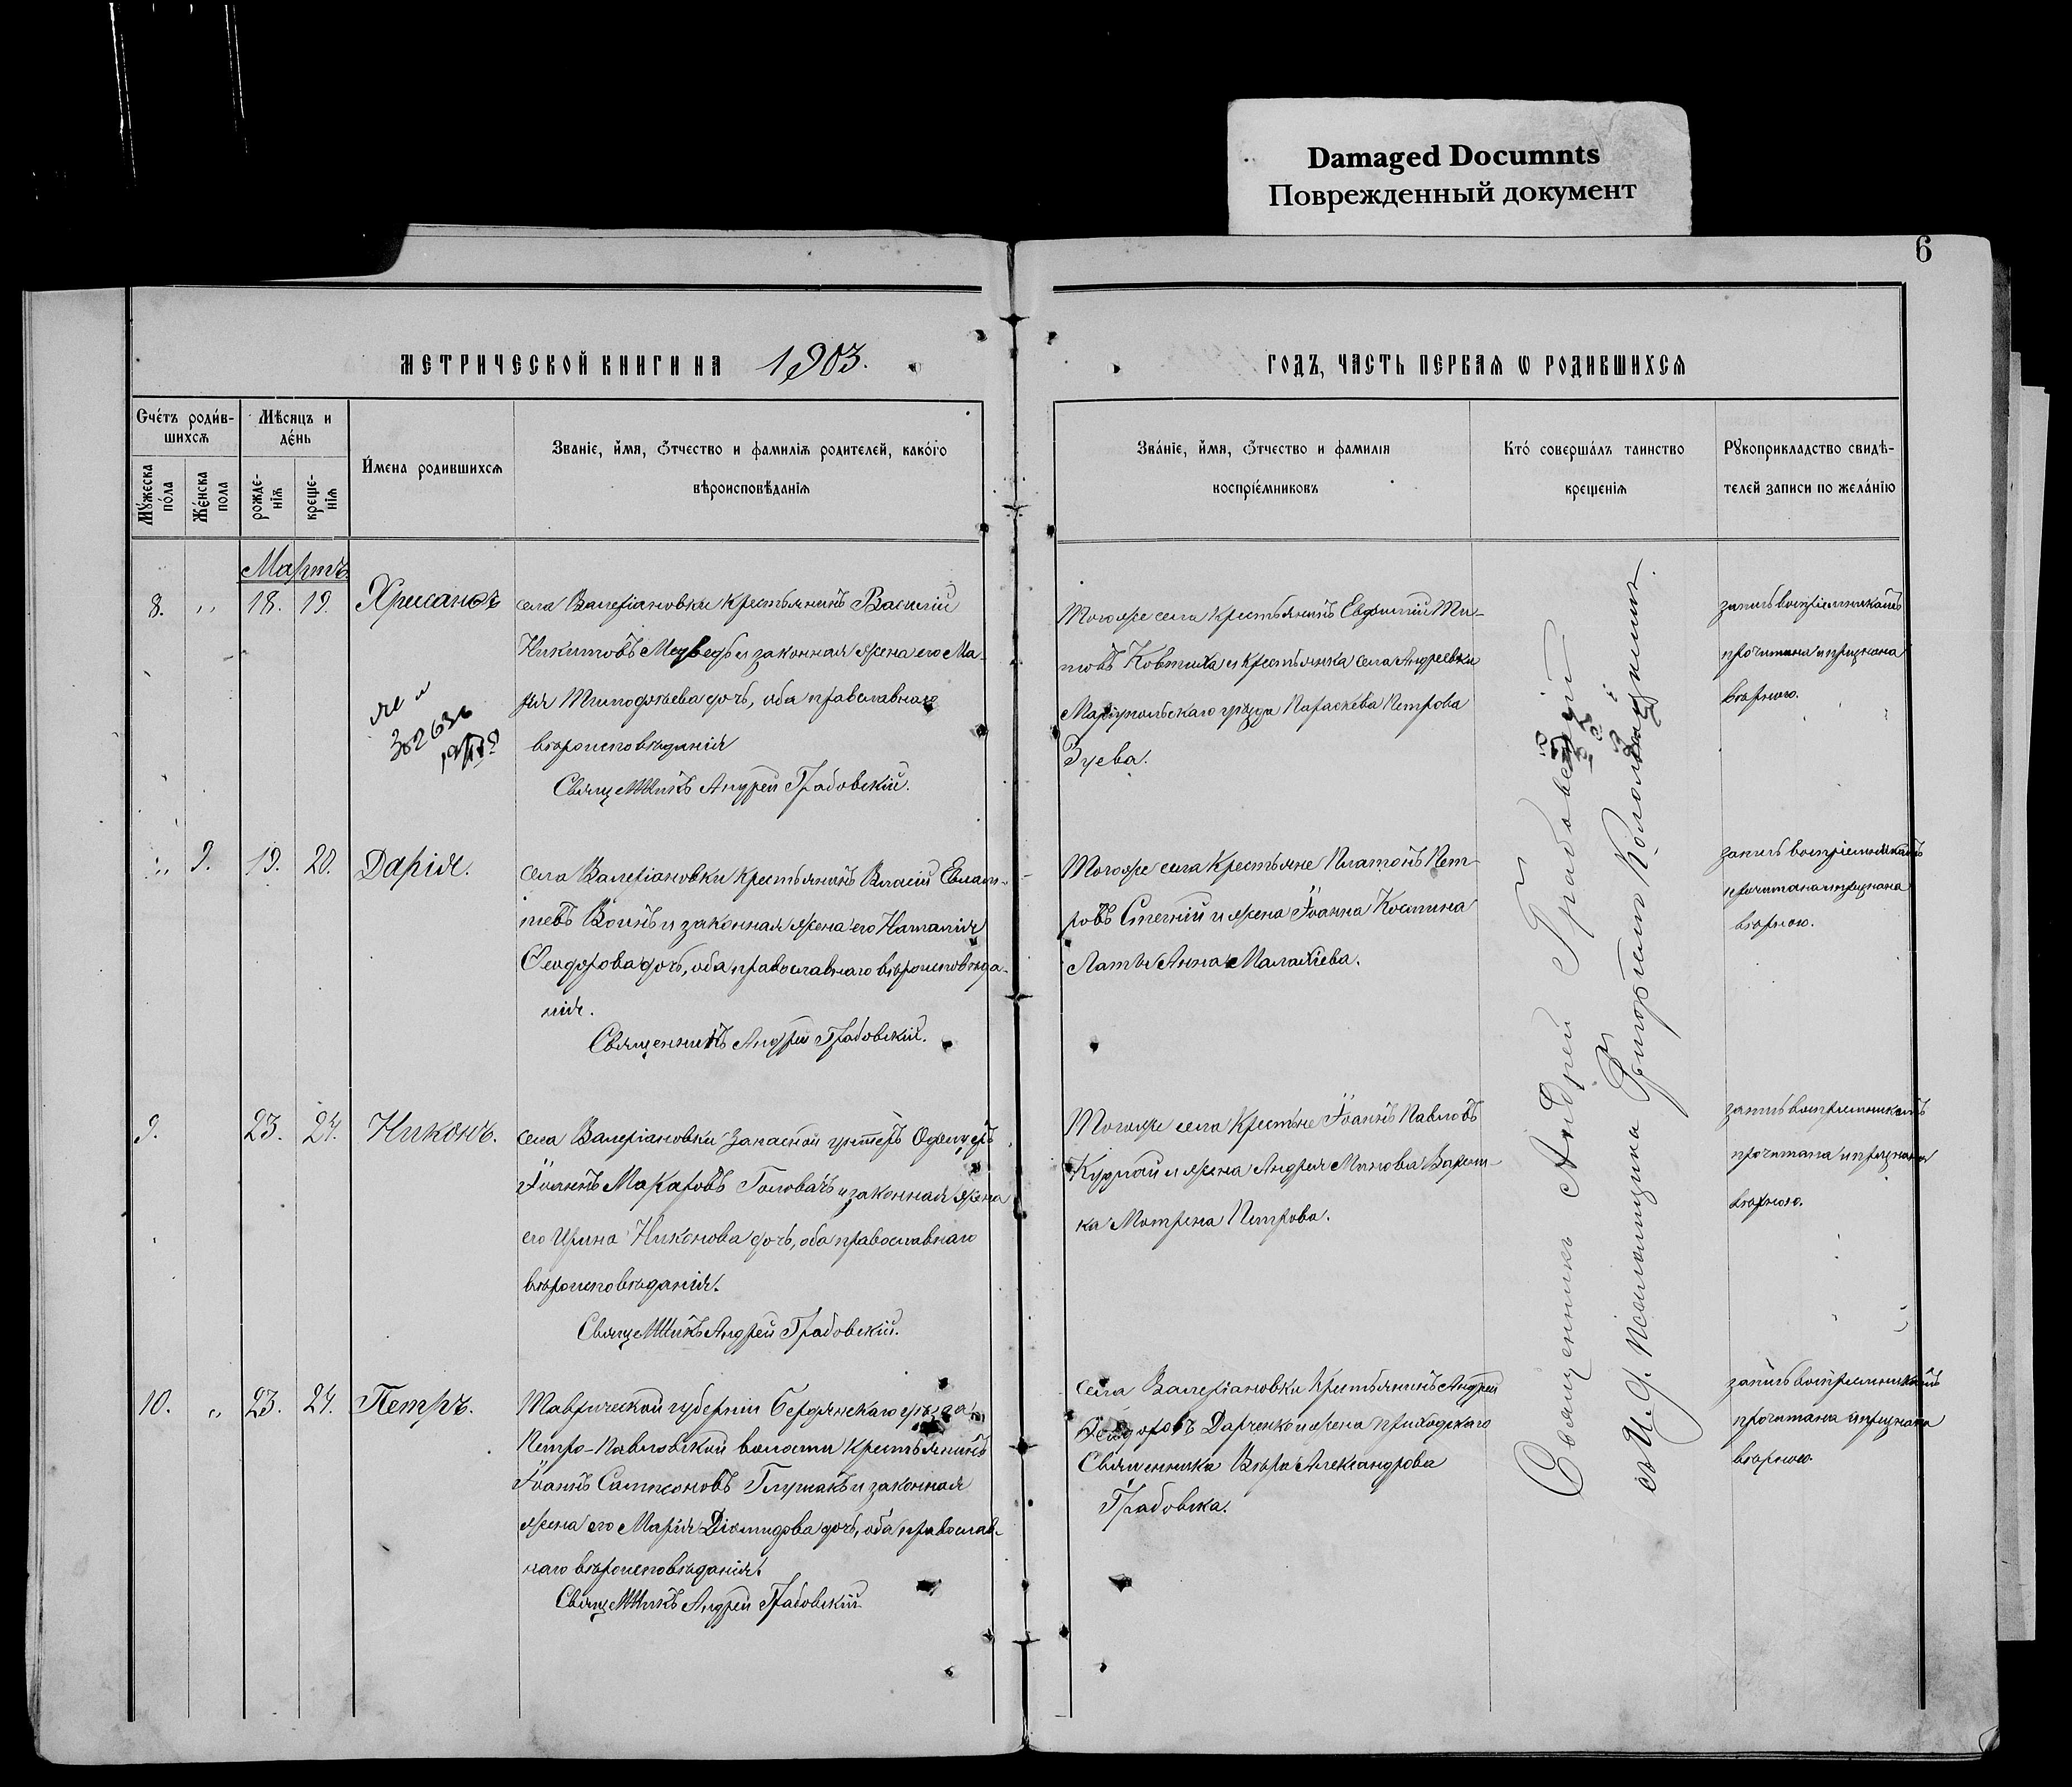 Damaged Documnts
Поврежденный документ
6
МЕТРИЧЕСКОЙ КНИГИ НА 1903.
ГОДЪ, ЧАСТЬ ПЕРВАѦ Ѡ РОДИВШИХСѦ
Счетъ родив-
шихсѧ
Мѣсяцъ и
день
Мужеска
пола
Женска
пола
рожде-
нія
креще-
нія
Имена родившихсѧ
Званіе, имя, отчество и фамилія родителей, какого
вѣроисповѣданія
Званіе, имя, отчество и фамилія
воспріемниковъ
Кто совершалъ таинство
крещенія
Рукоприкладство свидѣ-
телей записи по желанію
Мартъ
8. „ 18. 19. Хрисанѳъ
села Валеріановки крестьянинъ Василій
Никитовъ Медведь и законная жена его Ма-
рія Тимофѣева дочь, оба православнаго
вѣроисповѣданія
Священникъ Андрей Грабовскій.
Тогоже села крестьянинъ Евфимій Ти-
товъ Ковтуха и крестьянка села Андреевки
Маріупольскаго уѣзда Параскева Петрова
Зуева.
запись воспріемникамъ
прочитана и признана
вѣрною.
„ 9. 19. 20. Дарія.
села Валеріановки крестьянинъ Власій
и законная жена его Наталія
Ѳеодорова дочь, оба православнаго вѣроисповѣда-
нія.
Священникъ Андрей Грабовскій.
Тогоже села крестьяне Платонъ Пет-
ровъ и жена Іоанна Костина
Анна Малахіева.
запись воспріемникамъ
прочитана и признана
вѣрною.
9. 23. 24. Никонъ.
села Валеріановки запасной унтеръ Офицеръ
Іоаннъ Макаровъ Головачъ и законная жена
его Ирина Никонова дочь, оба православнаго
вѣроисповѣданія.
Священникъ Андрей Грабовскій.
Тогоже села крестьне Іоаннъ Павловъ
и жена Андрея
ка Мотрена Петрова.
запись воспріемникамъ
прочитана и признана
вѣрною.
10. „ 23. 24. Петръ.
Таврической губерніи Бердянскаго уѣзда
Петро-Павловской волости крестьянинъ
Іоаннъ Сампсоновъ Глушакъ и законная
жена его Марія Діомидова дочь, оба православ-
наго вѣроисповѣданія.
Священникъ Андрей Грабовскій
села Валеріановки крестьянинъ Андрей
Ѳеодоровъ и жена приходскаго
Священника Вѣра Александрова
Грабовска.
запись воспріемникамъ
прочитана и признана
вѣрною.
Священникъ Андрей Грабовскій
съ И. д. псаломщика Григоріемъ